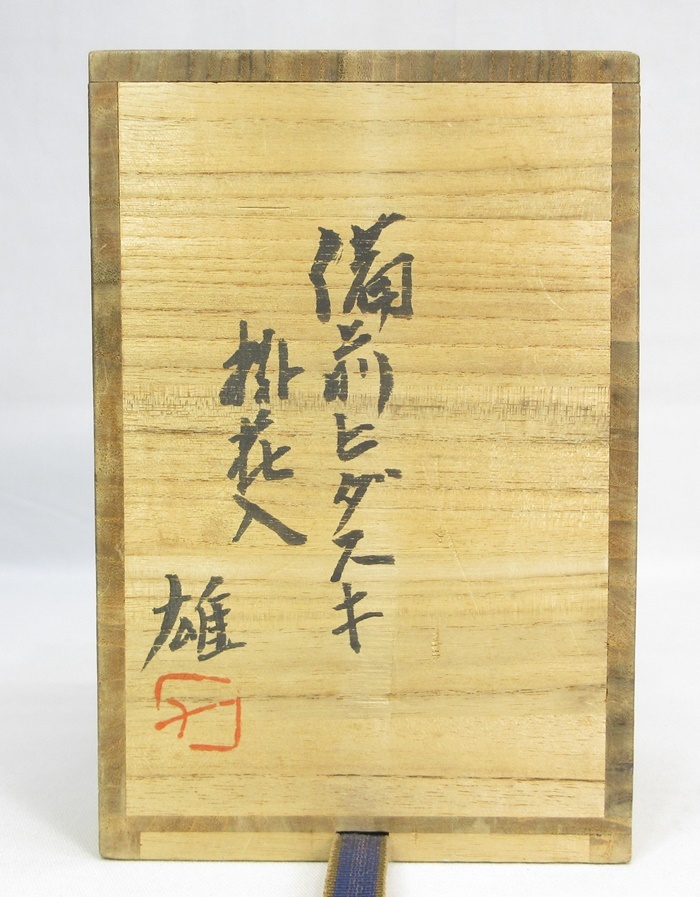 備前ヒダスキ
掛花入
雄